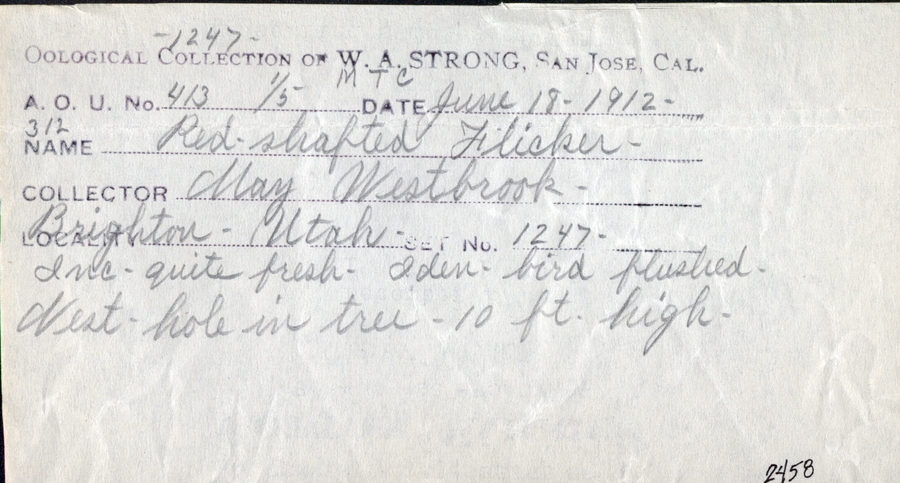 -1247-
OOLOGICAL COLLECTION OF W. A. STRONG, SAN JOSE, CAL.
M T C
A. O. U. No. 413 1/5 DATE June 18-1912-
312
NAME Red-shafted Flicker-
COLLECTOR May Westbrook-
LOCALITY Brighton-Utah- SET No. 1247-
Inc-quite fresh-Iden-bird flushed-
Nest-hole in tree-10 ft. high-
2458